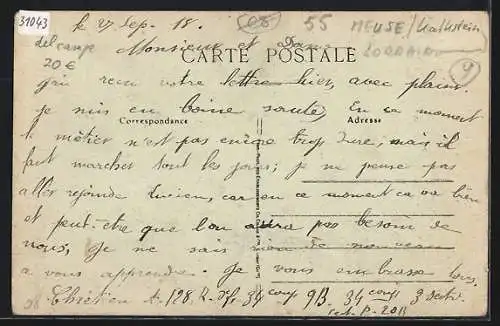 31043
le 27 Sep. 18.
08
55
MEUSE/
LORRAINE
9
delcampe
20 €
Monsieur et Dame
CARTE POSTALE
j'ai reçu votre lettre hier, avec plaisir.
je suis en bonne santé, En ce moment
Correspondance
Adresse
le métier n'est pas encore trop dure, mais il
faut marcher tout les jours; je ne pense pas
aller rejoindre Lucien, car en ce moment ca va bien
et peut-etre que l'on aura pas besoin de
nous, je ne sais rien de nouveau
a vous apprendre. Je vous embrasse tous.
Chrétien A. 128. R. 34 coup 9B. 34 coup 3 sectio.
sect. P - 20B